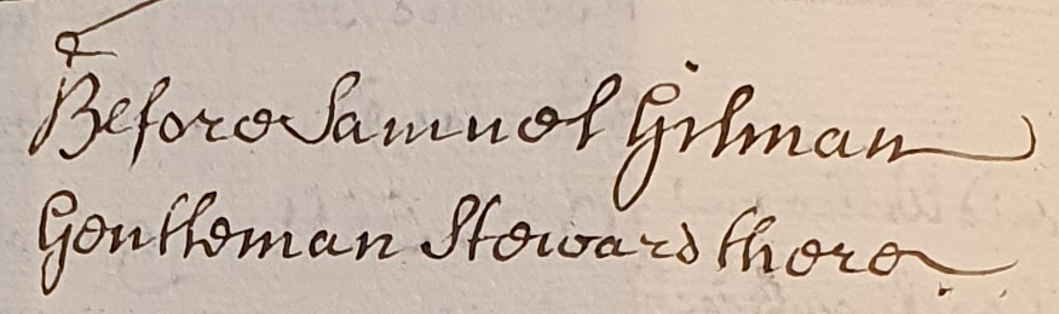 Before Samuel Gilman
Gentleman Steward there